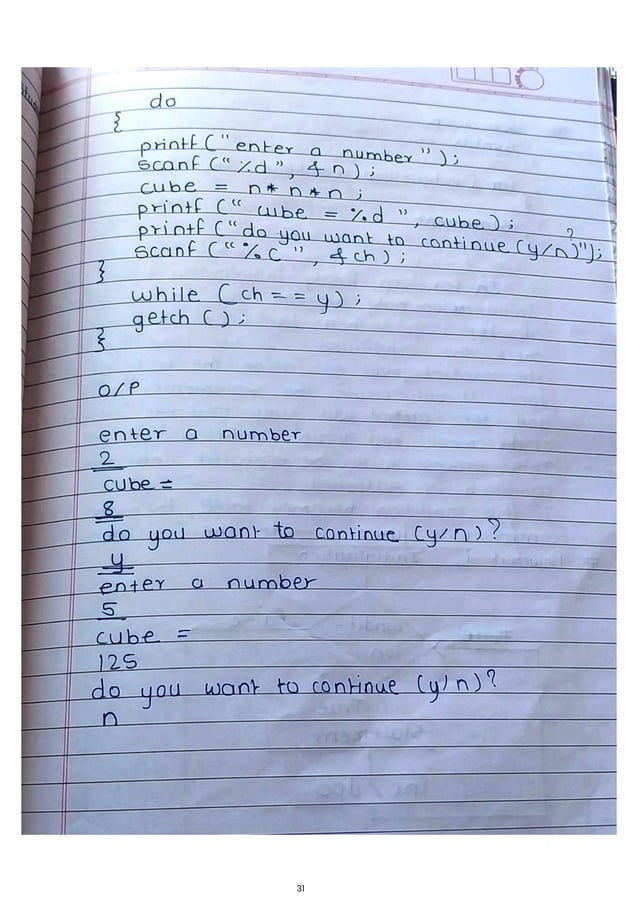 do
{
printf ("enter a number");
scanf ("%d", &n);
cube = n*n*n;
printf ("cube = %d", cube);
printf ("do you want to continue (y/n)?");
scanf ("%c", &ch);
}
while (ch == y);
getch ();
}
O/P
enter a number
2
cube =
8
do you want to continue (y/n)?
y
enter a number
5
cube =
125
do you want to continue (y/n)?
n
31